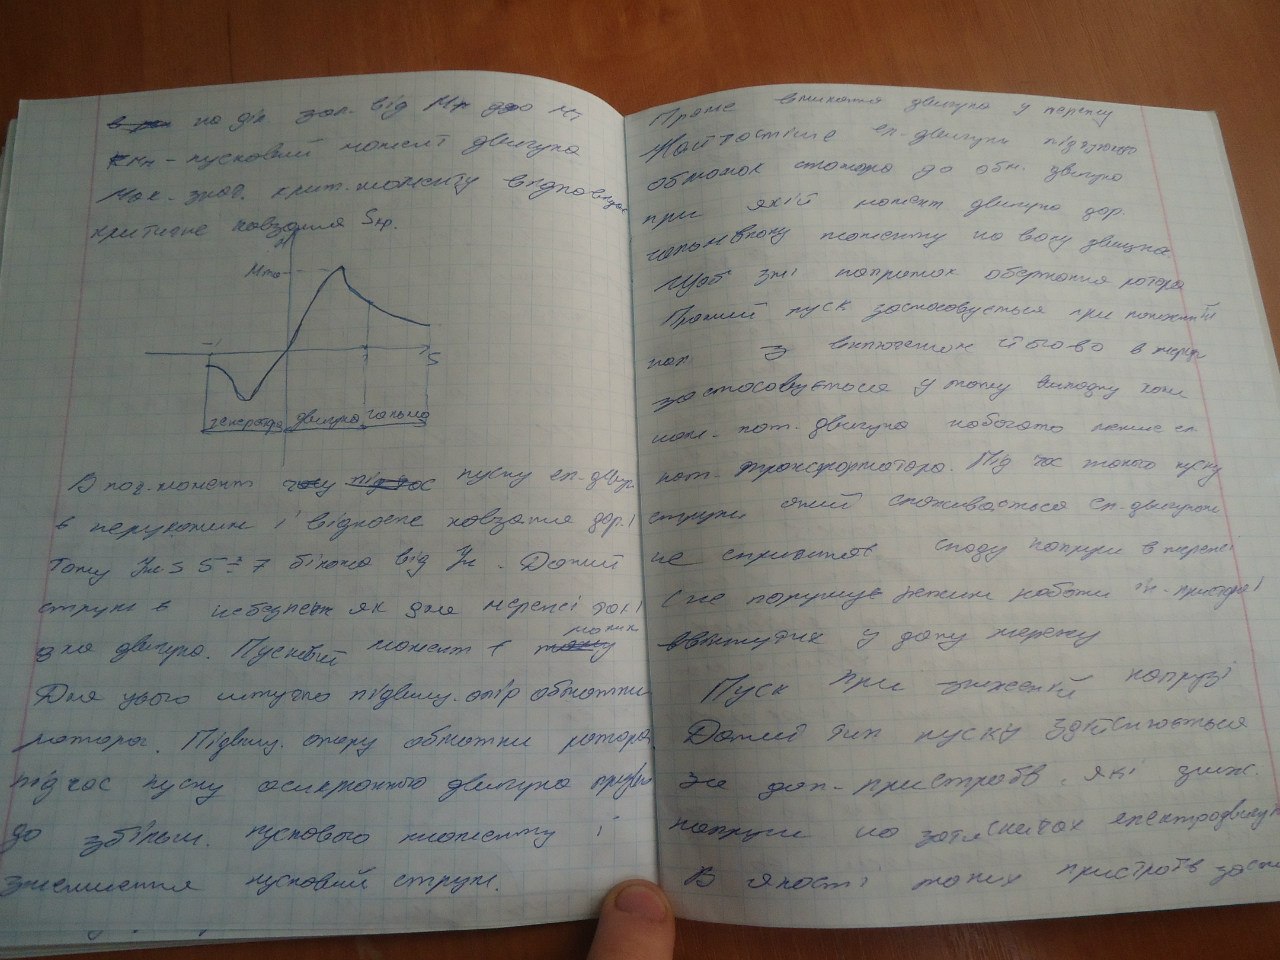 на діл. зал. від Мп до Мт
Мп - пусковий момент двигуна
Мак. знач. крит. моменту відповідає
критичне ковзання Sкр.
М
S
-1
1
генератор двигуна гальмо
В поч. момент пуску ел-двиг.
є нерухомим і відносне ковзання дор. 1
Тому 5÷7 більше від Ін. Даний
струм є небезпечн як для мережі так і
для двигуна. Пусковий момент є малим
Для цього штучно підвищ. опір обмотки
ротора. Підвищ. опору обмотки ротора
під час пуску асинхронного двигуна призв.
до збільш. пускового моменту і
зменшення пусковий струм.
Пряме вмикання двигуна у мережу
Найчастіше ел-двигуни
обмоток статора до обм. двигуна
при якій момент двигуна дор.
моменту на валу двигуна.
Щоб напрямок обертання ротора
Прямий пуск застосовується при
з включенням його в мереж
застосовується у тому випадку коли
ном. пот. двигуна набагато менше ел
пот. трансформатора. Під час такого пуску
струм який споживається ел-двигуном
не спаду напруги в мережі
і не порушує режим роботи ін. пристроїв
ввімкнутих у дану мережу
Пуск при зниженій напрузі
Даний тип пуску здійснюється
за доп. пристроїв які зниж.
напруги на затискачах електродвигуна
В якості таких пристроїв